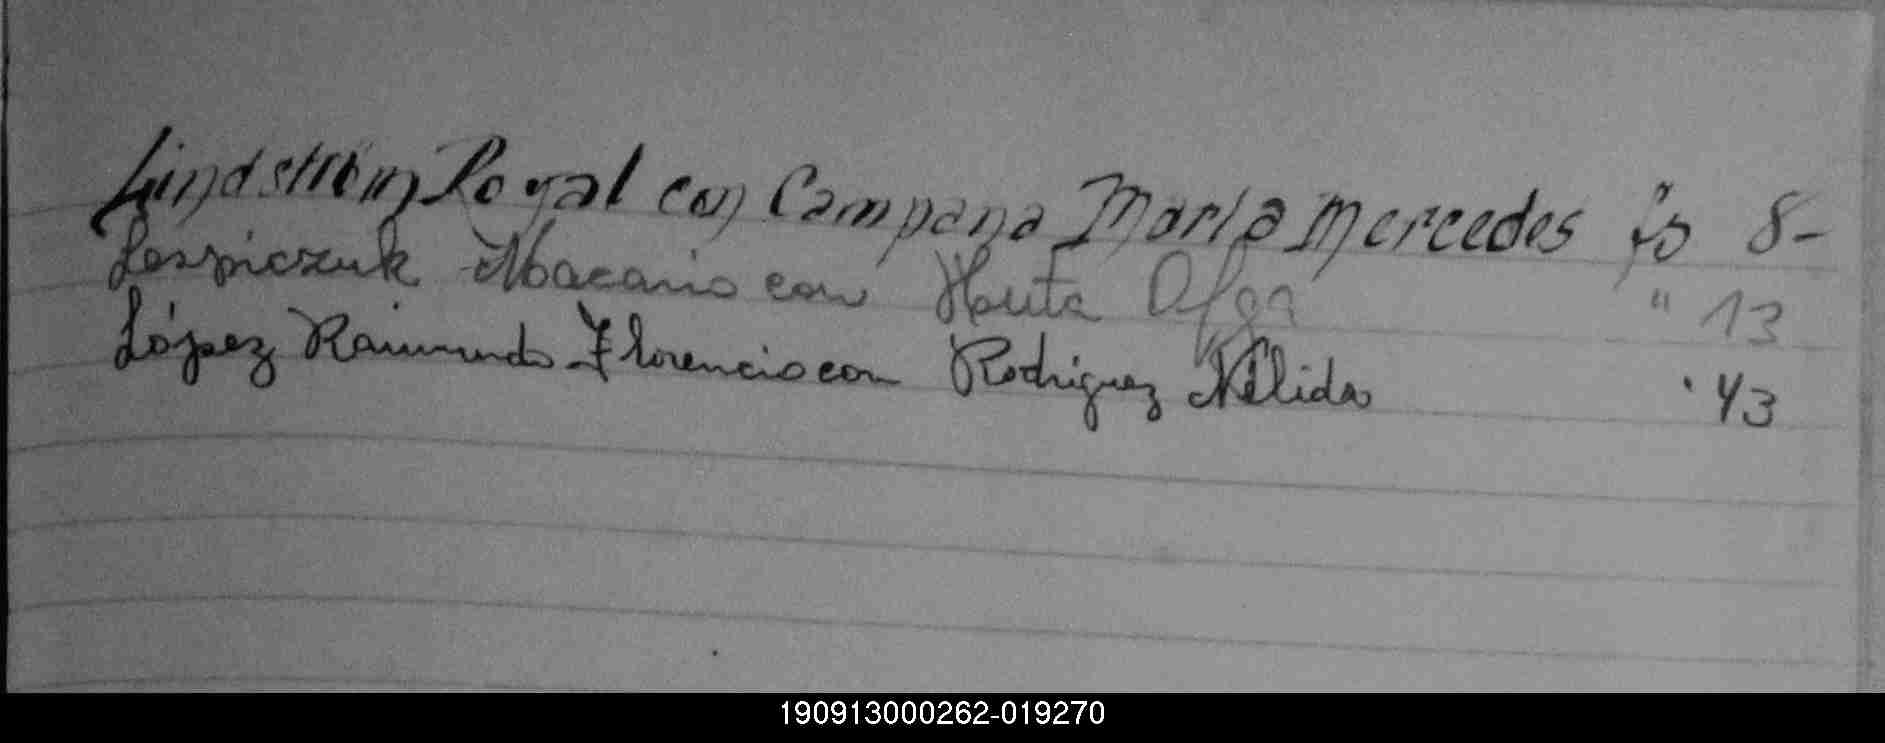 Lindström Royal con Campana María Mercedes fo 8-
Macario con Olga " 13
López Raimundo Florencio con Rodriguez Nélida " 43
190913000262-019270